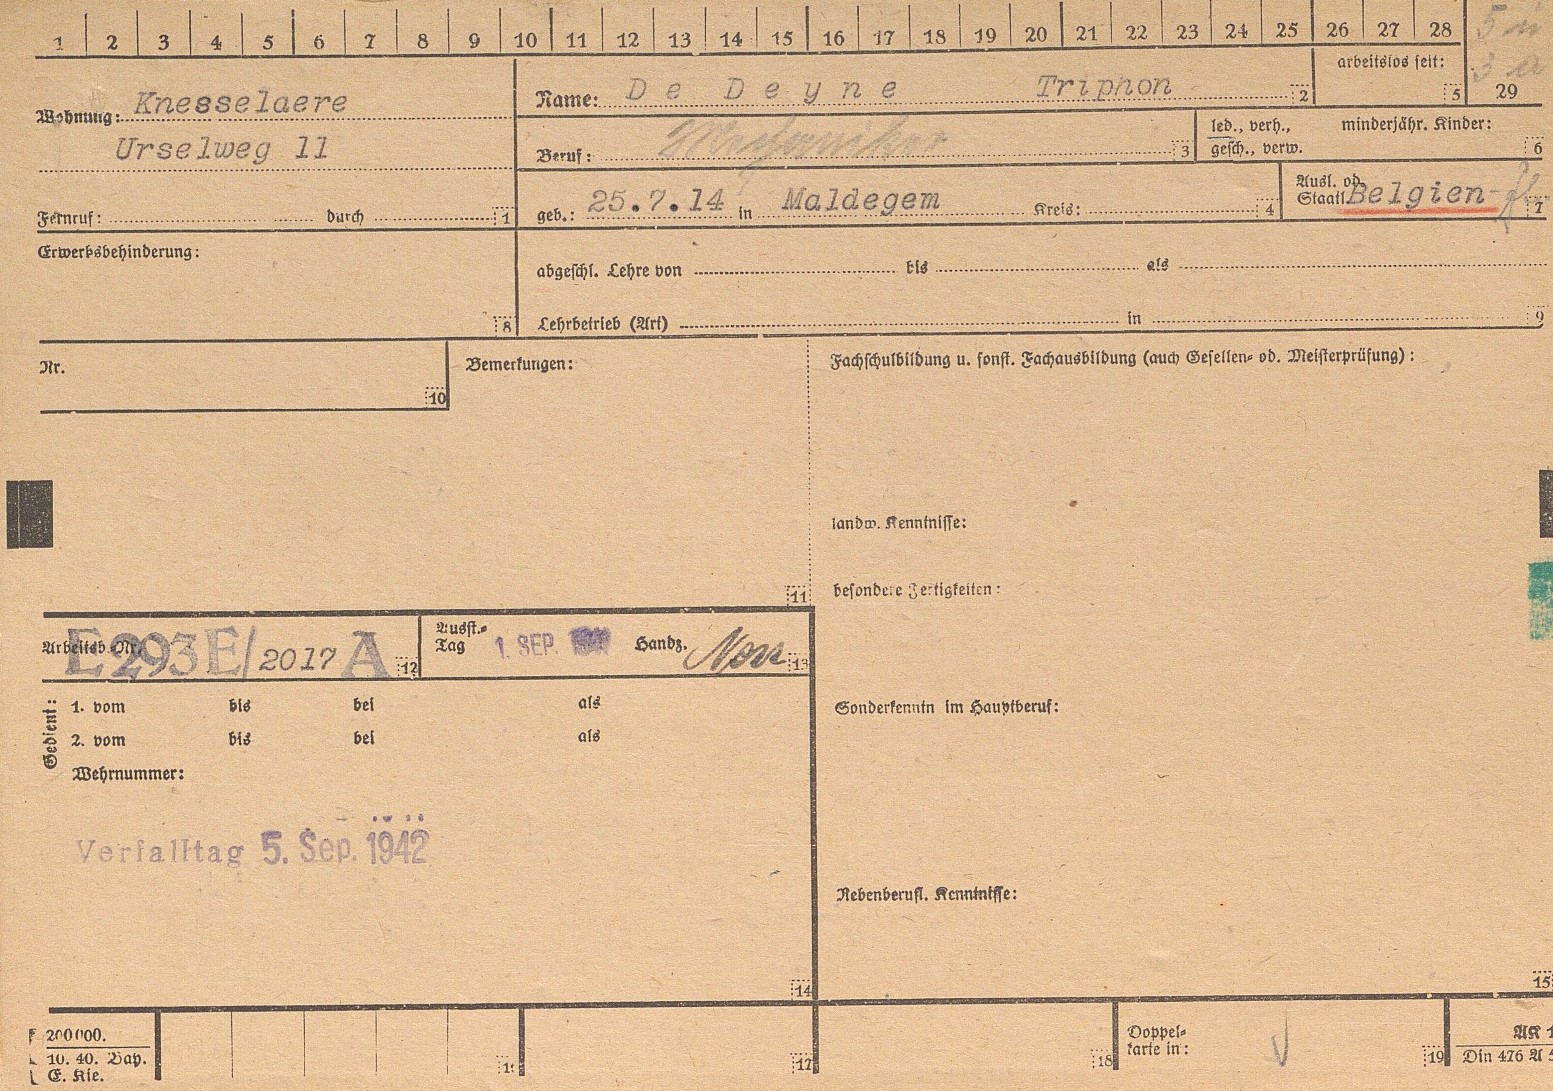 1 2 3 4 5 6 7 8 9 10 11 12 13 14 15 16 17 18 19 20 21 22 23 24 25 26 27 28
arbeitslos seit:
5
29
Wohnung: Knesselaere
Urselweg 11
Fernruf: durch 1
Name: De Deyne Triphon 2
Beruf: Mechaniker 3
led., verh., minderjähr. Kinder:
gesch., verw. 6
geb.: 25.7.14 in Maldegem Kreis: 4
Ausl. od.
Staatl. Belgien 7
Erwerbsbehinderung:
8
abgeschl. Lehre von bis als
Lehrbetrieb (Art) in 9
Nr.
10
Bemerkungen:
11
Fachschulbildung u. sonst. Fachausbildung (auch Gesellen- od. Meisterprüfung):
landw. Kenntnisse:
besondere Fertigkeiten:
Sonderkenntn im Hauptberuf:
Nebenberufl. Kenntnisse:
15
Arbeitsb.-Nr. E 293 E/2017 A 12
Ausst.-
Tag 1. SEP. Handz. 13
Gedient:
1. vom bis bei als
2. vom bis bei als
Wehrnummer:
Verfalltag 5. Sep. 1942
14
200000.
10. 40. Bay.
E. Kie.
17
18
Doppel-
karte in:
19
Din 476 A 5